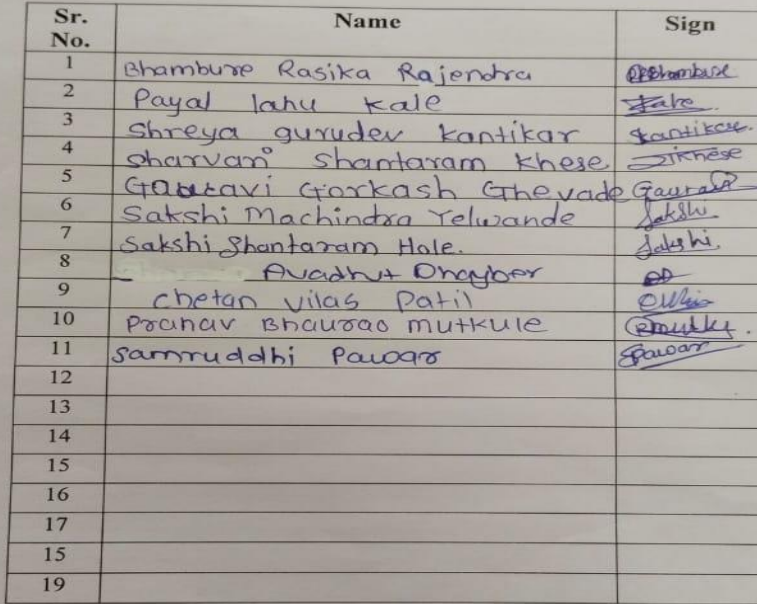 Sr. No. Name Sign
1 Bhambure Rasika Rajendra RRBhambure
2 Payal lahu kale Kale
3 Shreya gurudev kantikar Kantikar.
4 Sharvani Shantaram Khese Khese
5 Gauravi Gorkash Ghevade Gauravi
6 Sakshi Machindra Yelwande Sakshi
7 Sakshi Shantaram Hale. Sakshi
8 Avadhut Dhayber
9 Chetan Vilas Patil
10 Pranav Bhaurao mutkule
11 Samruddhi Pawar SPawar
12
13
14
15
16
17
15
19